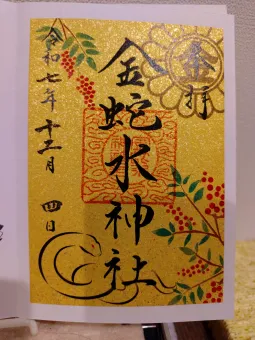 奉拝
金蛇水神社
令和七年十二月四日